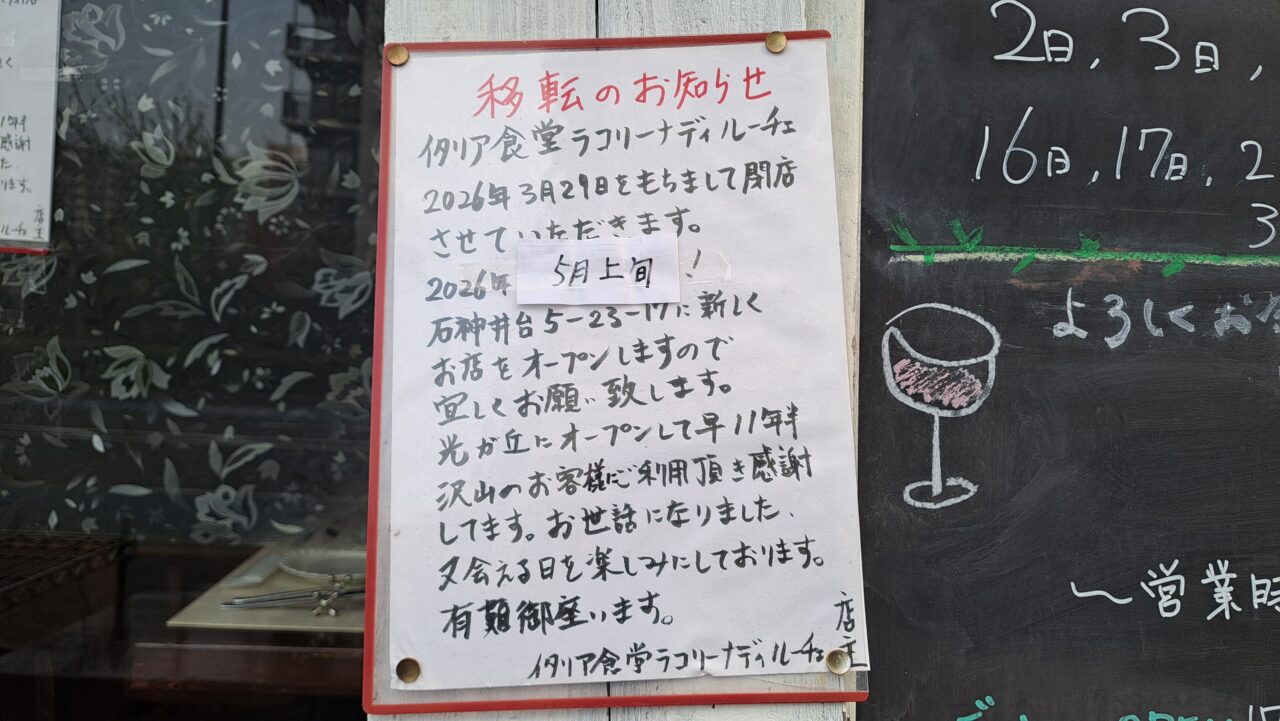 半
感謝
た
ります。
店
主
ルーチェ
移転のお知らせ
イタリア食堂ラコリーナディルーチェ
2026年3月29日をもちまして閉店
させていただきます。
2026年 5月上旬!
石神井台5-23-17に新しく
お店をオープンしますので
宜しくお願い致します。
光が丘にオープンして早11年半
沢山のお客様にご利用頂き感謝
してます。お世話になりました、
又会える日を楽しみにしております。
有難御座います。
店主
イタリア食堂ラコリーナディルーチェ
2日, 3日,
16日, 17日, 2
3
よろしくお
〜営業時